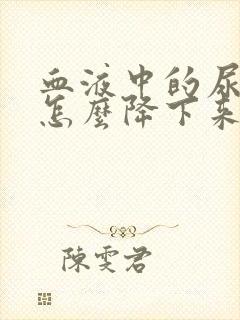 血液中的尿
怎麼降下来
陳雯君